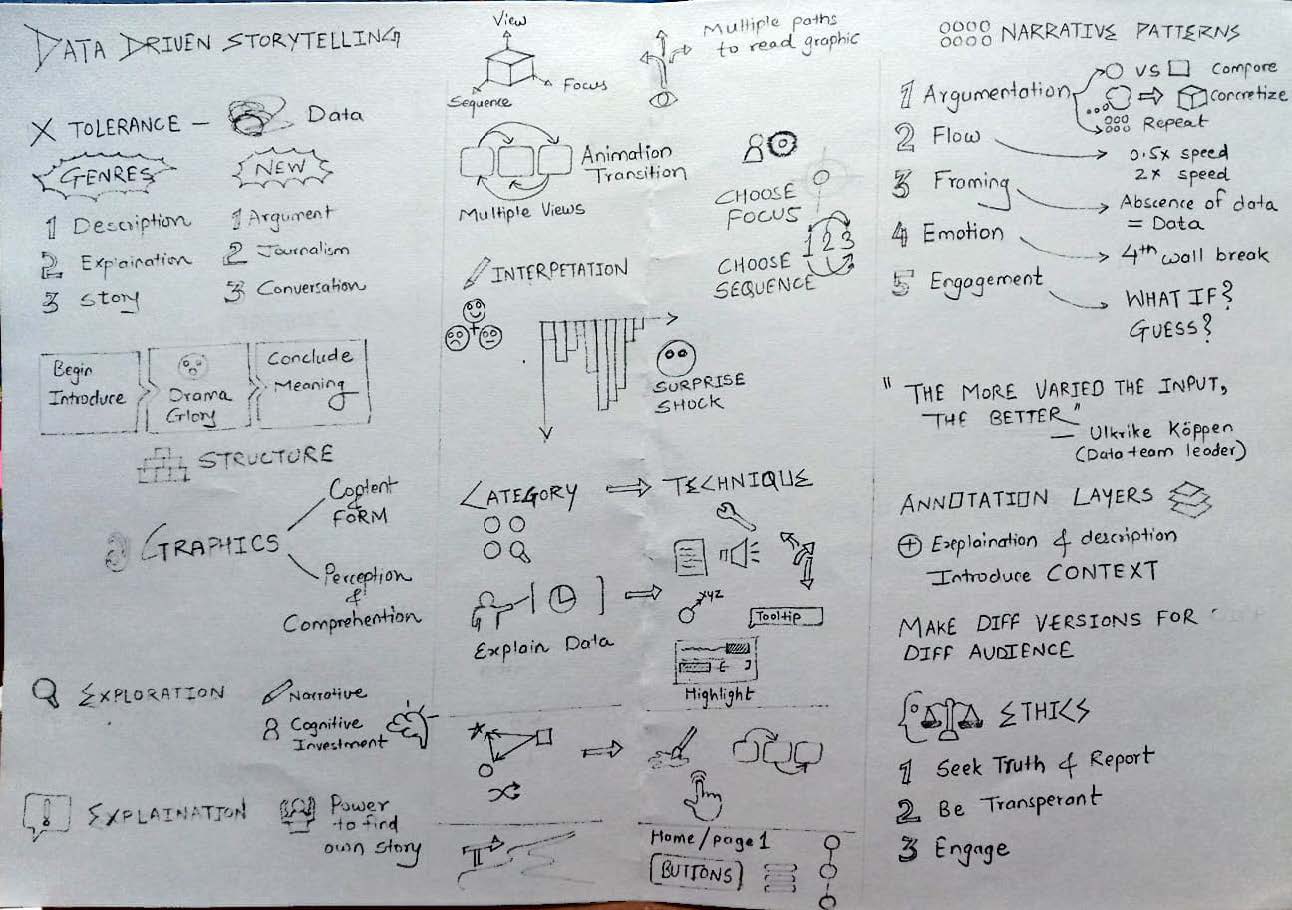 DATA DRIVEN STORYTELLING
X TOLERANCE — Data
GENRES
1 Description
2 Explaination
3 Story
NEW
1 Argument
2 Journalism
3 Conversation
Begin
Introduce
Drama
Glory
Conclude
Meaning
STRUCTURE
GRAPHICS
Content
&
FORM
Perception
&
Comprehention
EXPLORATION
Narrative
Cognitive
Investment
EXPLAINATION
Power
to find
own story
View
Sequence
Focus
Multiple paths
to read graphic
Animation
Transition
Multiple Views
CHOOSE
FOCUS
CHOOSE
SEQUENCE
1 2 3
INTERPETATION
SURPRISE
SHOCK
CATEGORY
TECHNIQUE
xyz
Tooltip
Explain Data
Highlight
Home/page 1
BUTTONS
NARRATIVE PATTERNS
1 Argumentation
VS Compare
Concretize
Repeat
2 Flow
0.5x speed
2x speed
3 Framing
Abscence of data
= Data
4 Emotion
4th wall break
5 Engagement
WHAT IF?
GUESS?
"THE MORE VARIED THE INPUT,
THE BETTER"
— Ulkrike Köppen
(Data team leader)
ANNOTATION LAYERS
+ Exeplaination & description
Introduce CONTEXT
MAKE DIFF VERSIONS FOR
DIFF AUDIENCE
ETHICS
1 Seek Truth & Report
2 Be Transperant
3 Engage